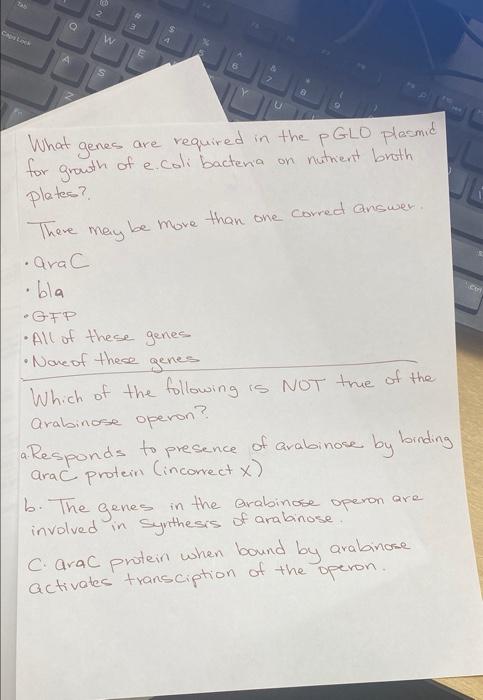 Tab
Caps Lock
Q
W
E
A
S
Z
@
2
#
3
$
4
%
^
6
&
7
*
8
(
9
Y
U
Ctrl
What genes are required in the pGLO plasmid
for growth of e.coli bacteria on nutrient broth
plates?.
There may be more than one correct answer.
• araC
• bla
• GFP
• All of these genes
• None of these genes
Which of the following is NOT true of the
arabinose operon?
a. Responds to presence of arabinose by binding
araC protein (incorrect x)
b. The genes in the arabinose operon are
involved in synthesis of arabinose.
C. araC protein when bound by arabinose
activates transciption of the operon.